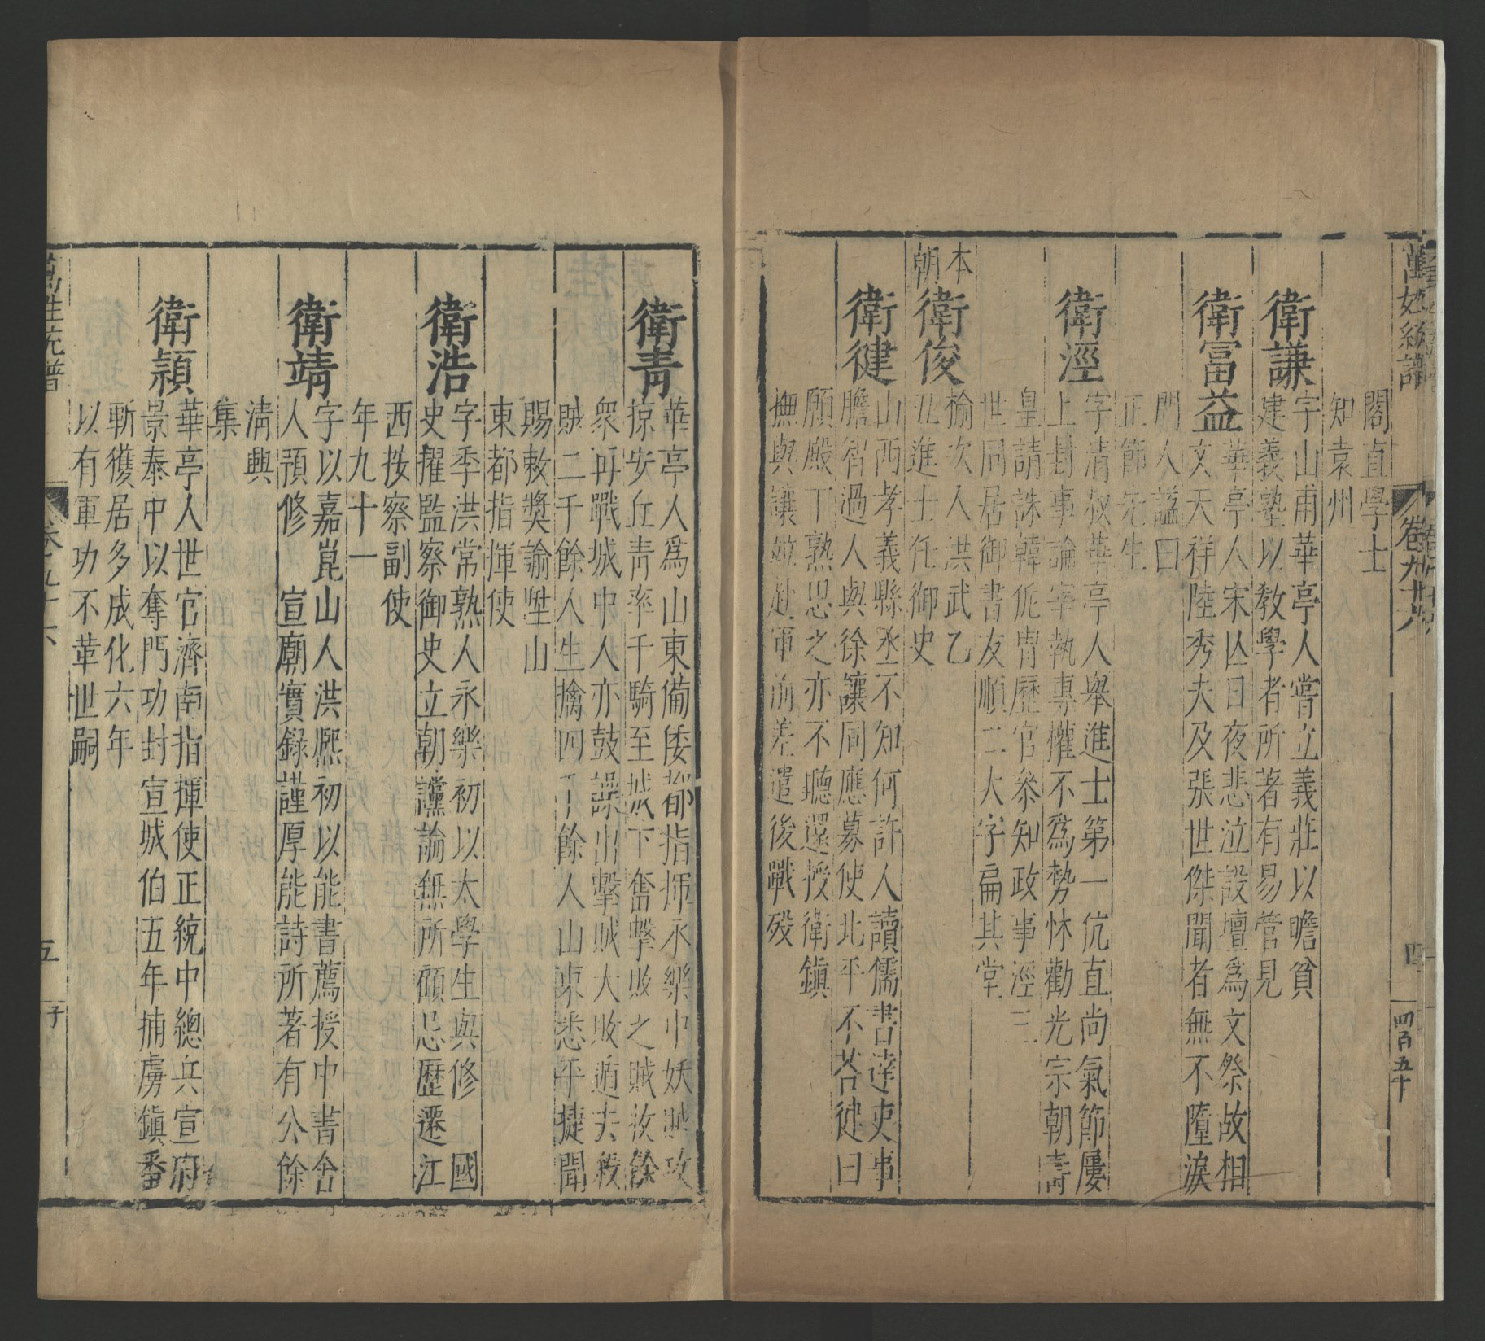 萬姓統譜
卷九十六
四
四百五十
閣直學士
知袁州
衛謙
字山甫華亭人嘗立義莊以贍貧
建義塾以教學者所著有易管見
衛富益
華亭人宋亾日夜悲泣設壇為文祭故相
文天祥陸秀夫及張世傑聞者無不墮淚
門人謚曰
正節先生
衛涇
字清叔華亭人舉進士第一伉直尚氣節屢
上封事論宰執專權不為勢怵勸光宗朝壽
皇請誅韓侂冑歷官叅知政事涇三
世同居御書友順二大字扁其堂
本朝
衛俊
榆次人洪武乙
丑進士任御史
衛健
山西孝義縣丞不知何許人讀儒書達吏事
膽智過人與徐讓同應募使北平不荅健曰
願殿下熟思之亦不聽還授衛鎮
撫與讓並赴軍前差遣後戰歿
衛青
華亭人為山東備倭都指揮永樂中妖賊攻
掠安丘青率千騎至城下奮擊敗之賊收餘
衆再戰城中人亦鼓譟出擊賊大敗遁去殺
賊二千餘人生擒四千餘人山東悉平捷聞
賜敕奬諭陞山
東都指揮使
衛浩
字季洪常熟人永樂初以太學生與修 國
史擢監察御史立朝讜論無所顧忌歷遷江
西按察副使
年九十一
衛靖
字以嘉崑山人洪熙初以能書薦授中書舍
人預修 宣廟實録謹厚能詩所著有公餘
清興
集
衛頴
華亭人世官濟南指揮使正統中總兵宣府
景泰中以奪門功封宣城伯五年捕虜鎮番
斬獲居多成化六年
以有軍功不革世嗣
萬姓統譜
卷九十六
五